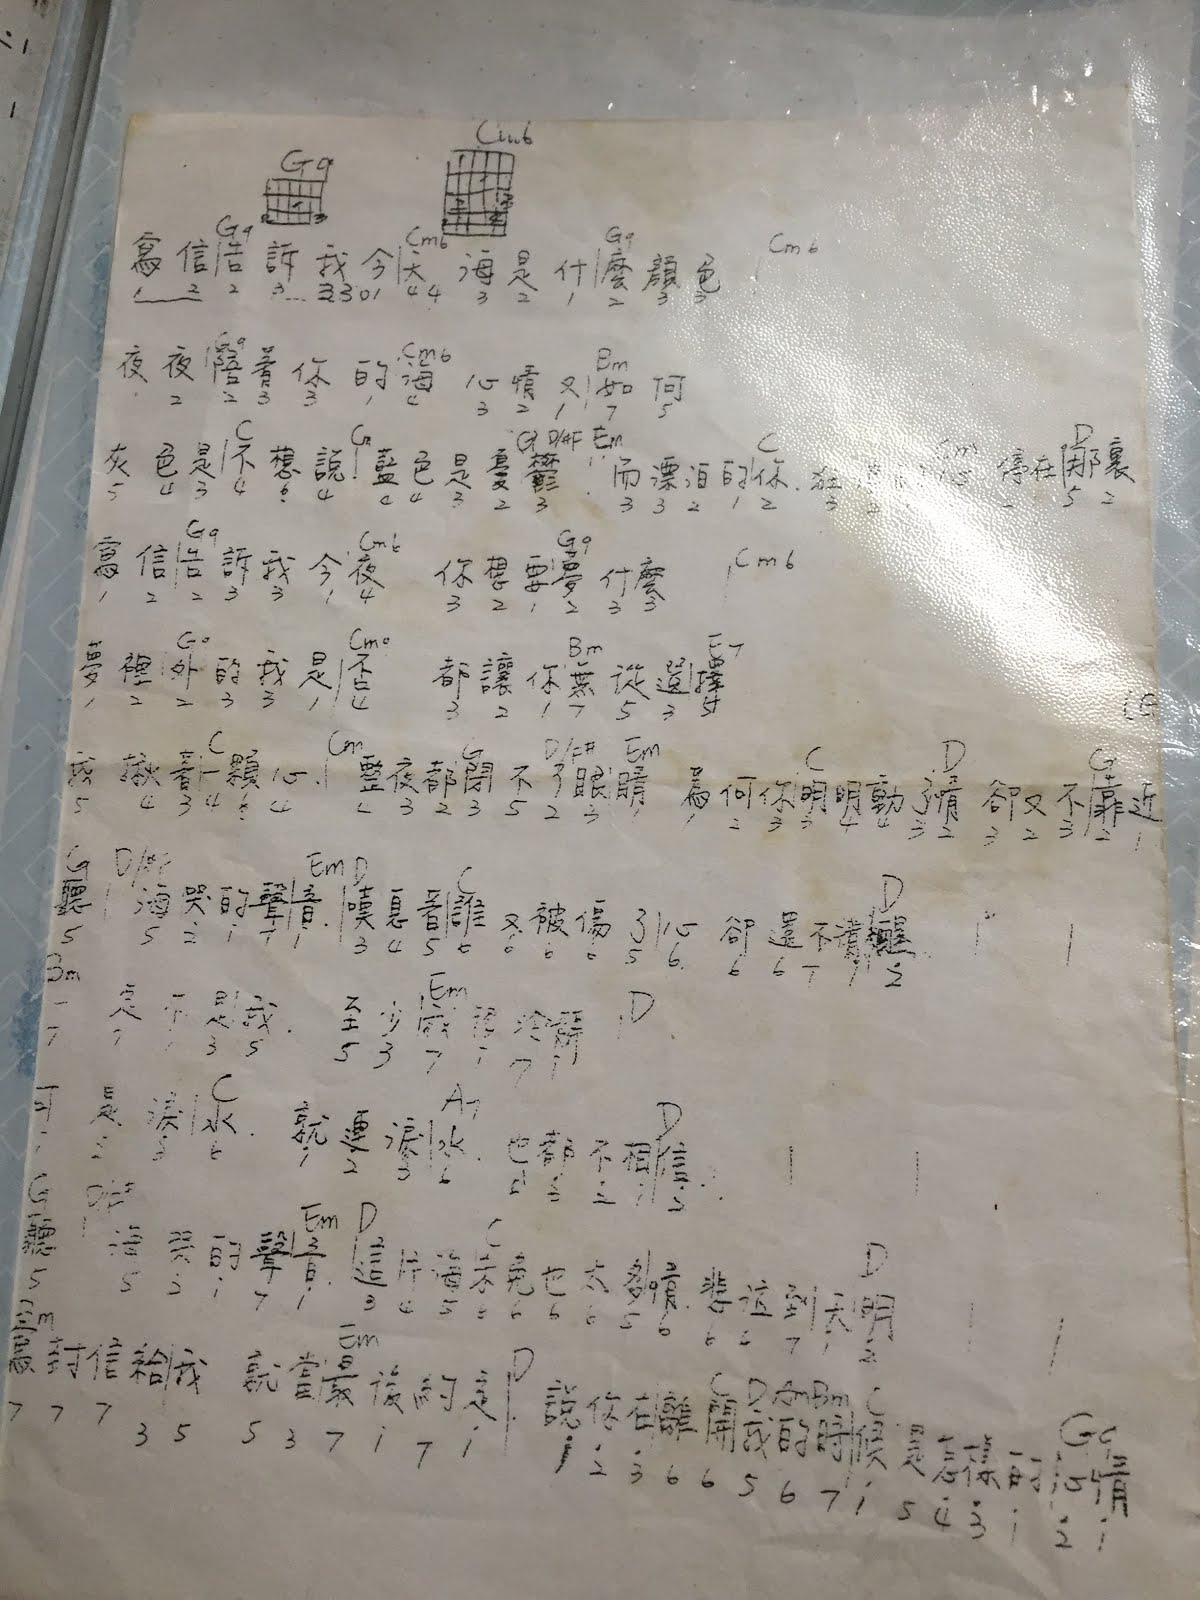 G9 Cm6
G9 Cm6 G9 Cm6
寫信|告訴我今|天 海是什|麼顏色
1 2 2 3 3 3 0 1 4 4 3 2 1 2 3 3
G9 Cm6 Bm
夜夜|陪著你的|海 心情又|如何
2 2 3 3 1 4 3 2 1 7 5
C G D/F# Em C D
灰色是|不想說|藍色是憂鬱 而漂泊的|你 停在|那裏
5 4 3 4 6 4 4 4 3 2 3 3 3 2 1 2 5 2
G9 Cm6 G9 Cm6
寫信|告訴我今|夜 你想要|夢什麼
1 2 2 3 3 1 4 3 2 1 2 3 3
G9 Cm6 Bm E7
夢裡|外的我是|否 都讓你|無從選擇
1 2 2 3 3 1 4 3 2 1 7 5 3 5
C Cm G D/F# Em C D G
我揪著|一顆心|整夜都|閉不了眼|睛 為何你|明明動|了情 卻又不|靠近
5 4 3 4 6 4 1 3 2 3 5 2 3 1 1 2 3 3 4 4 3 2 3 2 3 2 1
G D/F# Em D C D
聽|海哭的聲|音 |嘆息著|誰又被傷了|心 卻還不清|醒
5 5 2 1 7 1 3 4 5 6 6 6 6 5 6 6 6 7 1 2
Bm Em D
一定不|是我 至少|我很冷靜
7 7 1 3 5 5 3 7 1 7 1
C A7 D
可是淚|水 就連淚|水 也都不相|信
1 2 3 6 1 2 3 6 2 2 2 1 2
G D Em D C D
聽|海哭的聲|音 |這片海|未免也太多|情 悲泣到|天明
5 5 2 1 7 1 3 4 5 6 6 6 6 5 6 6 6 7 1 2
Bm Em D C D Bm C G
寫封信給|我 就當|最後約定| 說你在|離開我的時|候是
7 7 7 3 5 5 3 7 1 7 1 1 2 3 6 6 5 6 7 1 5 4 3 1 2 1